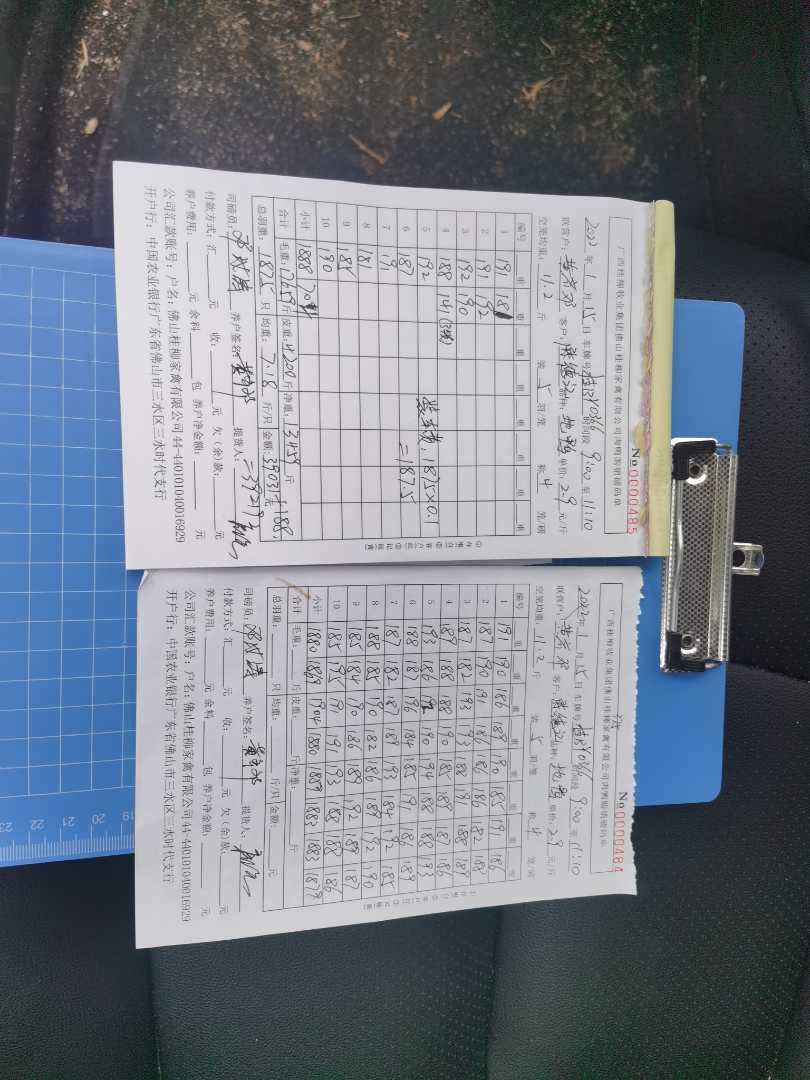 广西桂柳牧业集团佛山桂柳家禽有限公司肉鸭销磅码单
No 0000485
2022年 1 月 15 日 车牌号 时间段 9:00 至 11:10
联营户: 客户: 品种: 地鸭 单价: 2.9 元/斤
空笼均重: 11.2 斤 装 5 羽/笼 称 4 笼/磅
编号 重 重 重 重 重 重 重
1 191 181
2 191 192
3 192 190
4 188
5 192 装车费: 1875×0.1
6 187 =187.5
7 171
8 181
9 185
10 190
小计 1888
合计 毛重: 17659 斤 皮重: 4200 斤 净重: 13459 斤
总羽重: 1875 只 均重: 7.18 斤/只 金额: 39031+188 元
=39219元
司磅员: 养户签名: 提货人:
付款方式: 汇 元 收: 元 欠(余)款: 元
养户费用: 元 余料 包 养户净金额: 元
公司汇款账号: 户名: 佛山桂柳家禽有限公司 44-440101040016929
开户行: 中国农业银行广东省佛山市三水区三水时代支行
广西桂柳牧业集团佛山桂柳家禽有限公司肉鸭销磅码单
No 0000484
2022年 1 月 15 日 车牌号 时间段 9:00 至 11:10
联营户: 客户: 品种: 地鸭 单价: 2.9 元/斤
空笼均重: 11.2 斤 装 5 羽/笼 称 4 笼/磅
编号 重 重 重 重 重 重 重 重
1 191 190 186 189 190 185 191 186
2 187 190 191 186 186 186 182 188
3 187 182 192 193 188 191 188 189
4 189 188 188 190 185 189 187 186
5 193 186 192 190 194 188 188 193
6 188 187 196 184 185 191 186 189
7 187 182 187 189 193 184 192 185
8 188 185 190 182 186 189 192 190
9 185 184 190 186 189 192 189 187
10 185 195 191 191 193 188 188 186
小计 1880 1869 1904 1880 1889 1883 1883 1879
合计 毛重: 斤 皮重: 斤 净重: 斤
总羽重: 只 均重: 斤/只 金额: 元
司磅员: 养户签名: 提货人:
付款方式: 汇 元 收: 元 欠(余)款: 元
养户费用: 元 余料 包 养户净金额: 元
公司汇款账号: 户名: 佛山桂柳家禽有限公司 44-440101040016929
开户行: 中国农业银行广东省佛山市三水区三水时代支行
19 20 21 22 23